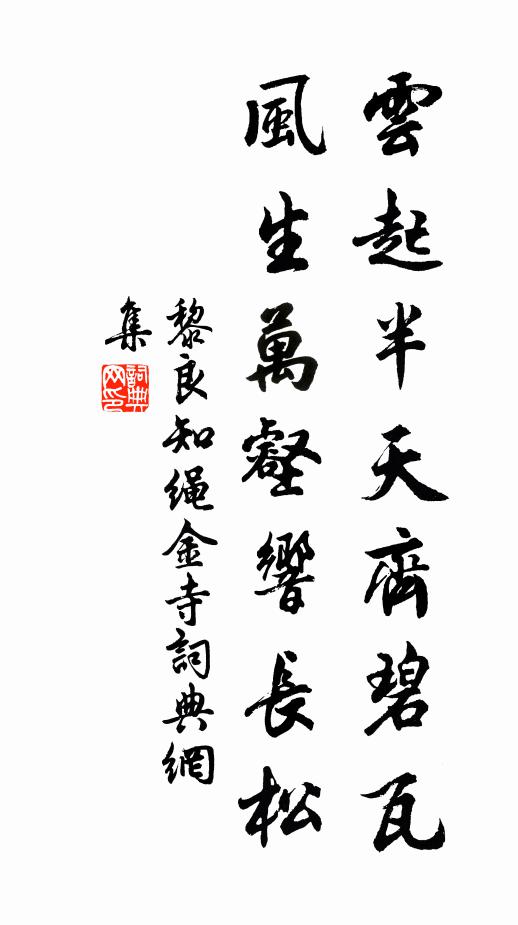 雲起半天齊碧瓦
風生萬壑響長松
黎良知繩金寺詞典網
集
詞典
网印